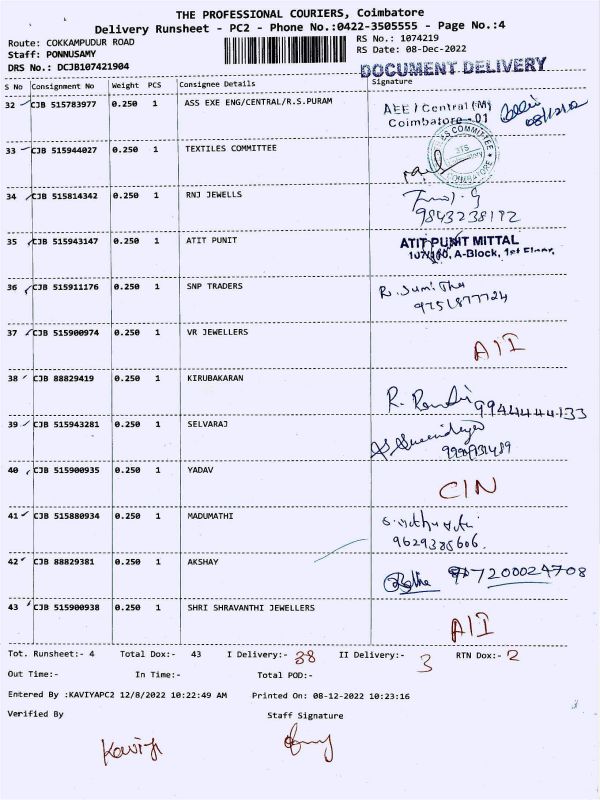 THE PROFESSIONAL COURIERS, Coimbatore
Delivery Runsheet - PC2 - Phone No.:0422-3505555 - Page No.:4
Route: COKKAMPUDUR ROAD
Staff: PONNUSAMY
DRS No.: DCJB107421904
RS No.: 1074219
RS Date: 08-Dec-2022
DOCUMENT DELIVERY
S No Consignment No Weight PCS Consignee Details Signature
32 CJB 515783977 0.250 1 ASS EXE ENG/CENTRAL/R.S.PURAM
AEE / Central (M)
Coimbatore - 01
33 CJB 515944027 0.250 1 TEXTILES COMMITTEE
COMMITTEE
COIMBATORE
34 CJB 515814342 0.250 1 RNJ JEWELLS
9843238112
35 CJB 515943147 0.250 1 ATIT PUNIT
ATIT PUNIT MITTAL
A-Block, 1st Floor,
36 CJB 515911176 0.250 1 SNP TRADERS
9751877724
37 CJB 515900974 0.250 1 VR JEWELLERS
A/I
38 CJB 88829419 0.250 1 KIRUBAKARAN
9944444133
39 CJB 515943281 0.250 1 SELVARAJ
40 CJB 515900935 0.250 1 YADAV
C/N
41 CJB 515880934 0.250 1 MADUMATHI
9629385606.
42 CJB 88829381 0.250 1 AKSHAY
7200024708
43 CJB 515900938 0.250 1 SHRI SHRAVANTHI JEWELLERS
A/I
Tot. Runsheet:- 4 Total Dox:- 43 I Delivery:- 38 II Delivery:- 3 RTN Dox:- 2
Out Time:- In Time:- Total POD:-
Entered By :KAVIYAPC2 12/8/2022 10:22:49 AM Printed On: 08-12-2022 10:23:16
Verified By Staff Signature